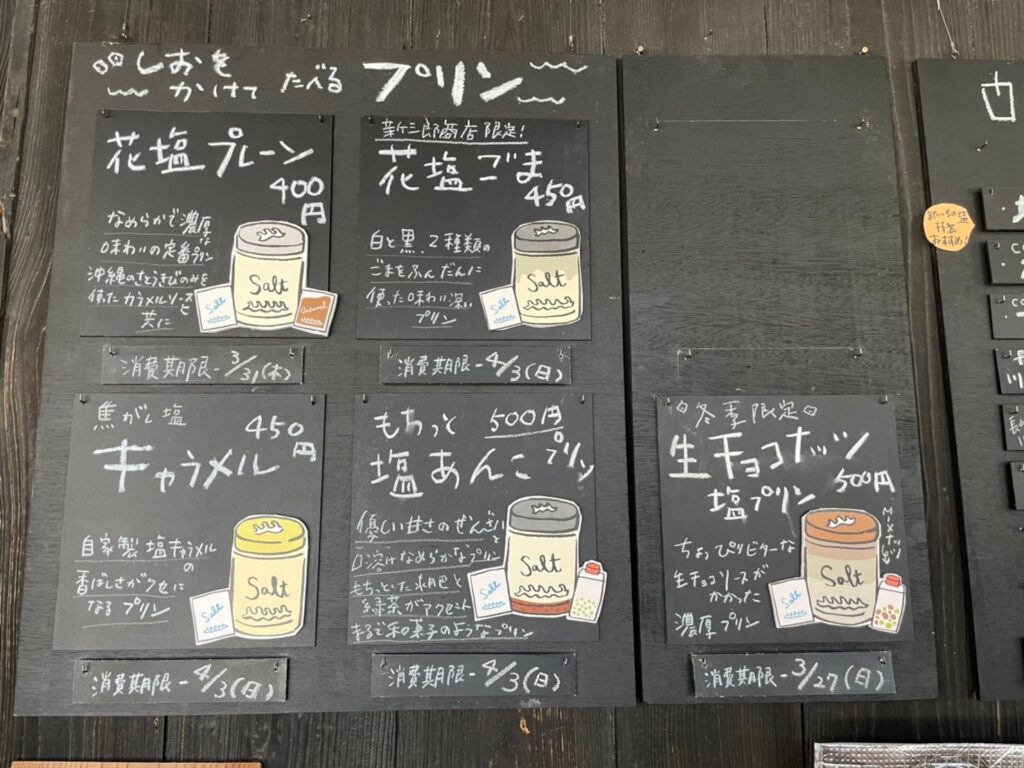 しおを
かけて たべる プリン
花塩プレーン
400
円
なめらかで濃厚な
味わいの定番プリン
沖縄のさとうきびのみを
使ったカラメルソースと
共に
Salt
Salt
Caramel
消費期限-3/31(木)
新三郎商店限定!
花塩ごま
450
円
白と黒、2種類の
ごまをふんだんに
使った味わい深い
プリン
Salt
Salt
消費期限-4/3(日)
焦がし塩
キャラメル
450
円
自家製塩キャラメルの
香ばしさがクセに
なるプリン
Salt
Salt
消費期限-4/3(日)
もちっと 500円
塩あんこプリン
優しい甘さのぜんざいと
口溶けなめらかなプリン
もちっとした求肥と
緑茶がアクセント
まるで和菓子のようなプリン
Salt
Salt
消費期限-4/3(日)
冬季限定
生チョコナッツ
塩プリン
500円
MIXナッツ
ちょっぴりビターな
生チョコソースが
かかった
濃厚プリン
Salt
Salt
消費期限-3/27(日)
おすすめ!